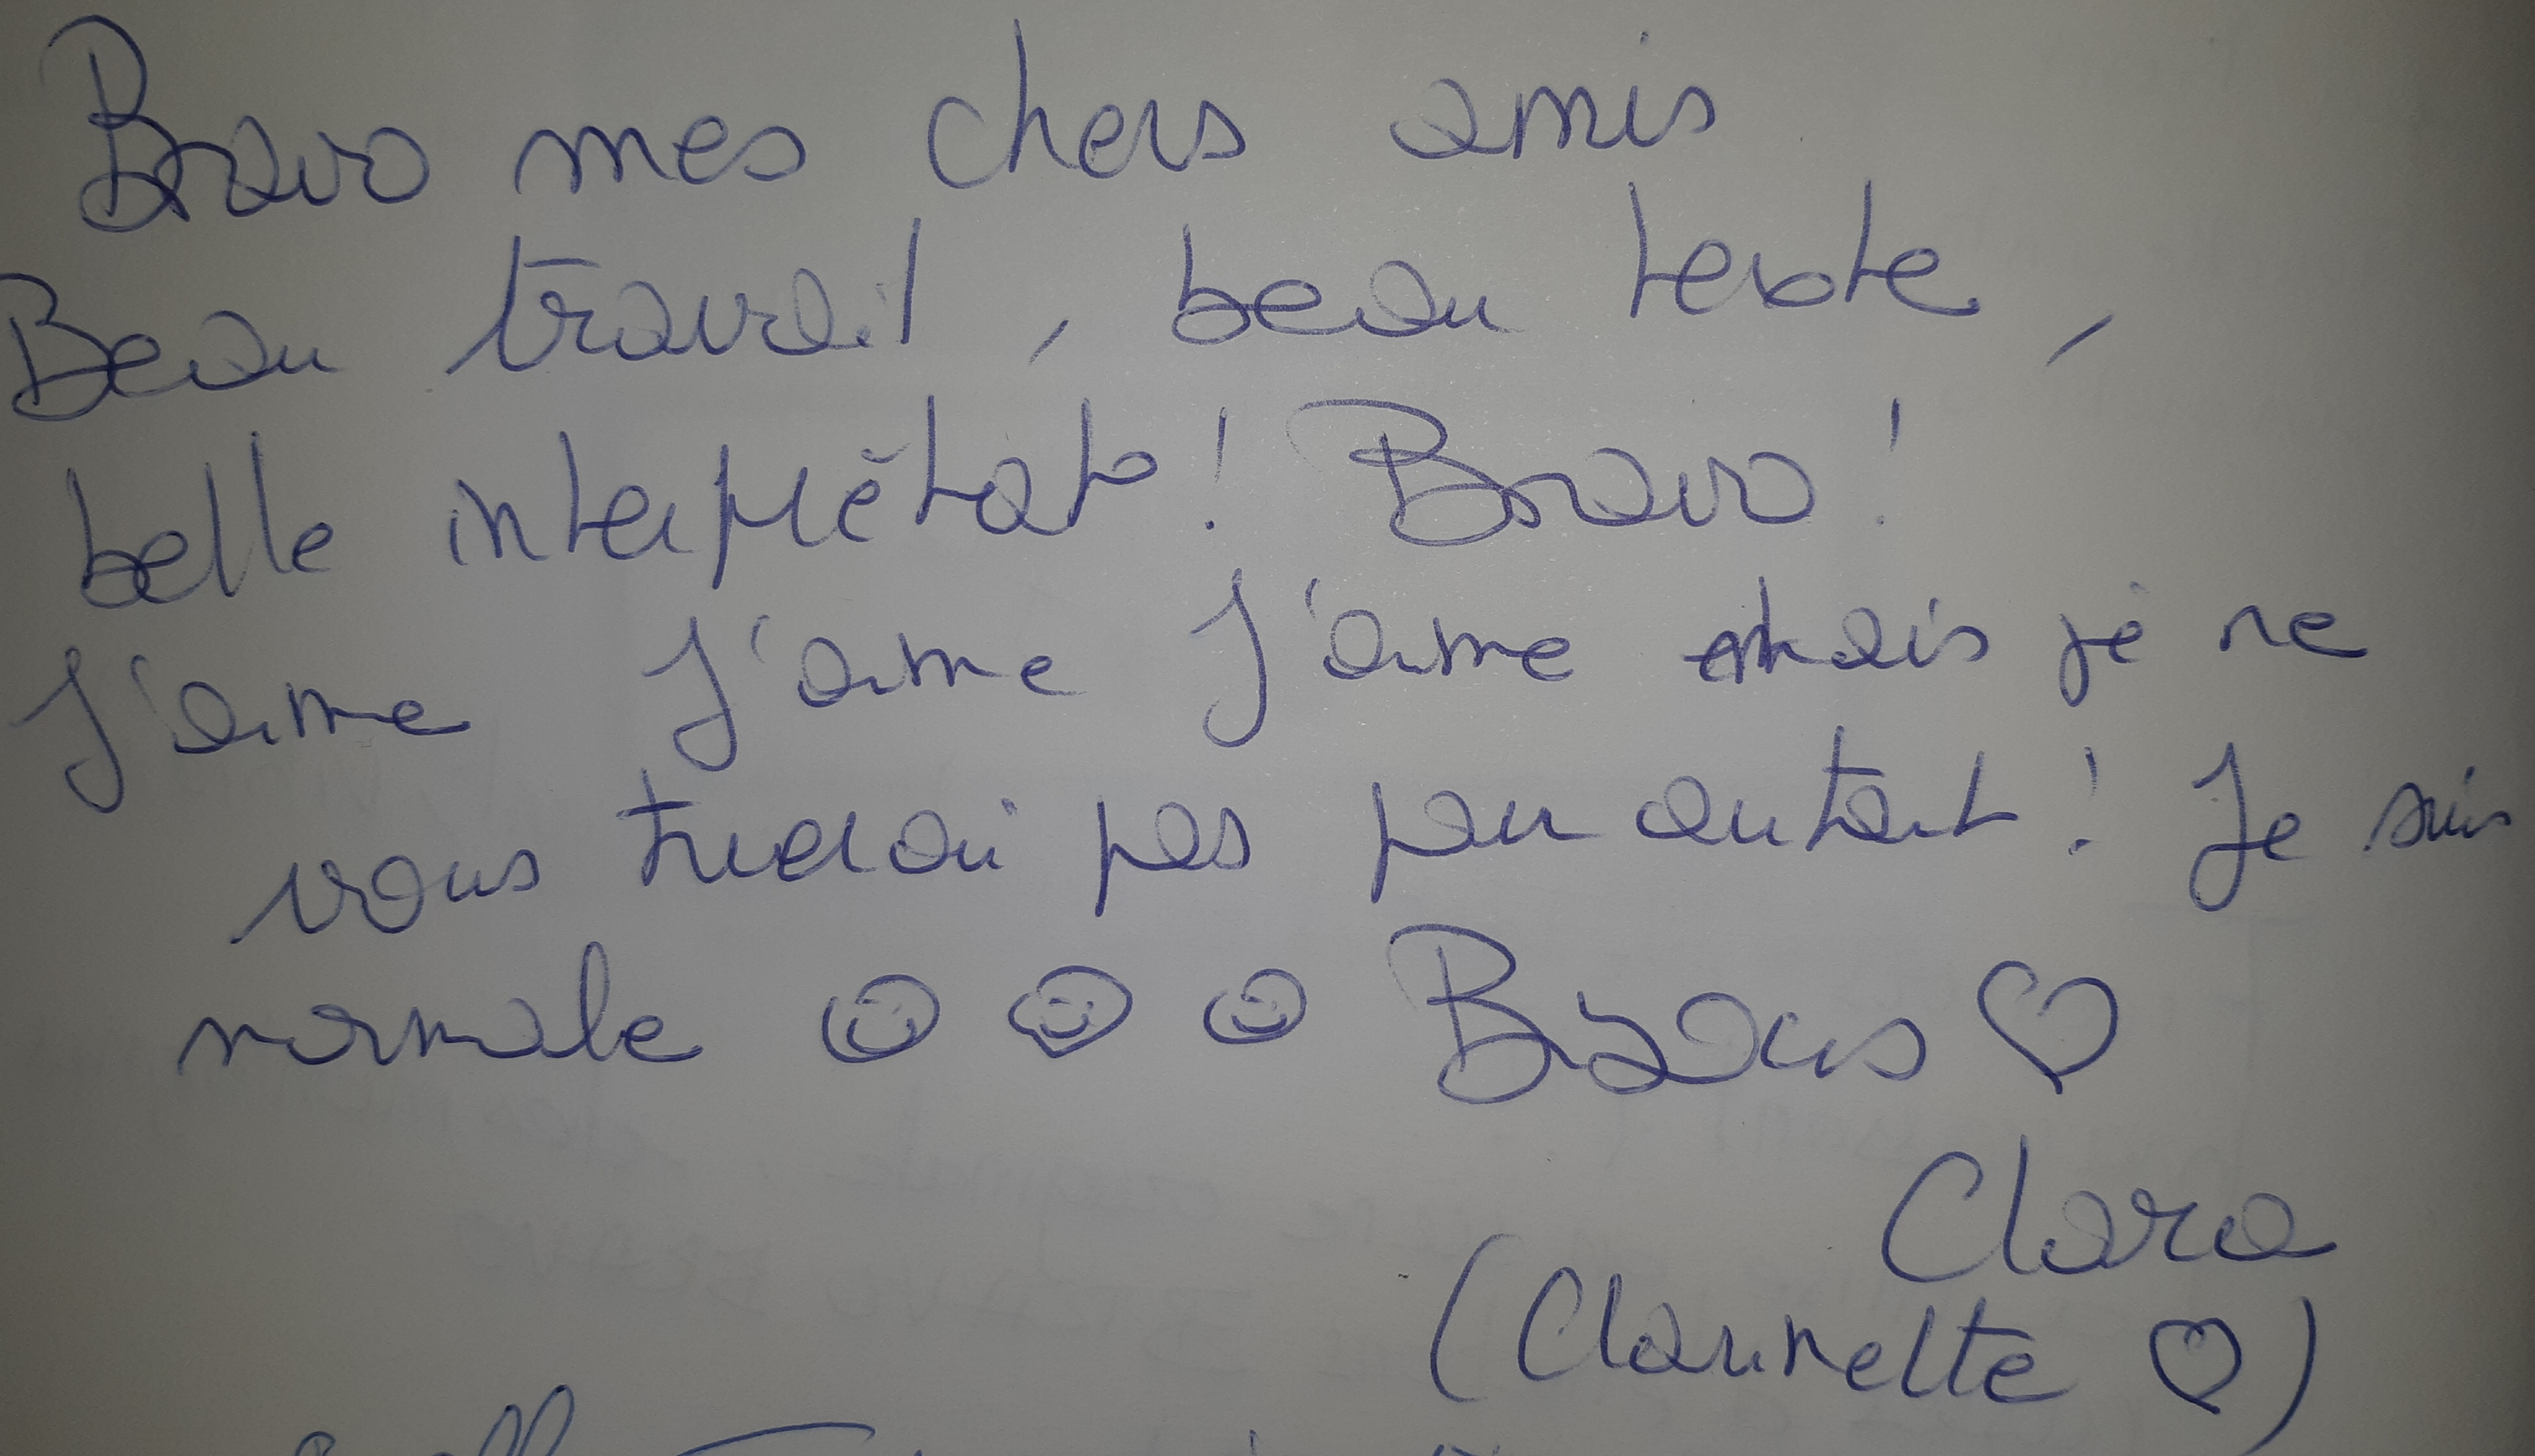 Bravo mes chers amis
Beau travail, beau texte,
belle interprétat°! Bravo!
J'aime J'aime J'aime mais je ne
vous tuerai pas pour autant! Je suis
normale ☺ ☺ ☺ Bisous ♡
Clara
(Clarinette ♡)